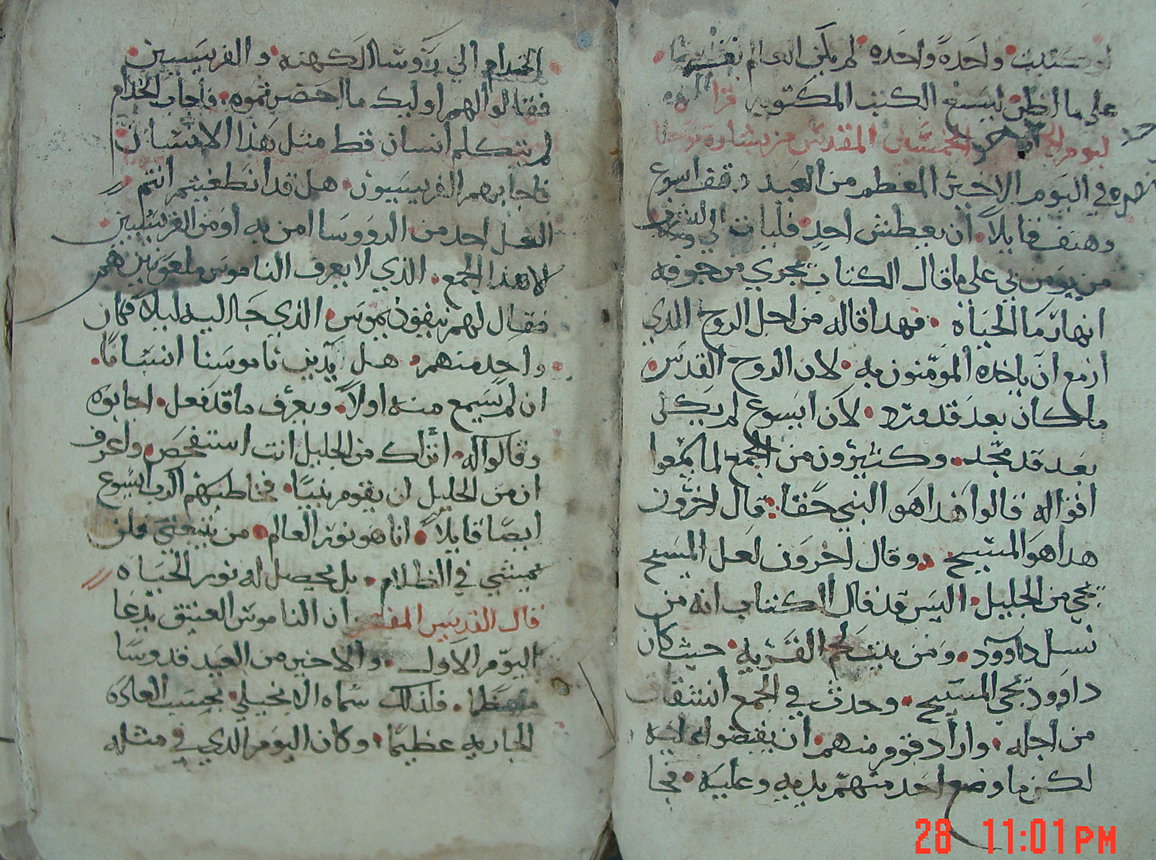 لو كتبت واحده واحده لم يكن العالم
علي ما اظن ليسع الكتب المكتوبه قراه
ليوم الخمسين المقدس من بشاره يوحنا
في اليوم الاخير المعظم من العيد وقف ايسوع
وهتف قايلا. ان يعطش احد فليات الي
من يومن بي علي ما قال الكتاب تجري من جوفه
انهار ما الحياه. فهدا قاله من اجل الروح الدي
ازمع ان ياخده المومنون به. لان الروح القدس
ما كان بعد لان ايسوع لم يكن
بعد قد مجد. وكثيرون من الجمع لما سمعوا
اقواله قالوا هدا هو النبي حقا. قال اخرون
هدا هو المسيح. وقال اخرون لعل المسيح
يجي من الجليل. اليس قد قال الكتاب انه من
نسل داوود. ومن بيت لحم القريه. حيث كان
داوود يجي المسيح. وحدث في الجمع انشقاق
من اجله. واراد قوم منهم ان يقبضوا عليه
لكن ما وضع احد منهم يديه عليه. فجا
الخدام الي روسا الكهنه والفريسيين.
فقالوا لهم اوليك ما احضرتموه. فاجاب الخدام
لم يتكلم انسان قط مثل هذا الانسان
فاجابهم الفريسيون. هل قد انطغيتم انتم
العل احد من الروسا امن به او من الفريسيين
الا هدا الجمع. الذي لا يعرف الناموس ملعونين هم
فقال لهم نيقوديموس. الذي جا اليه ليلا كان
واحد منهم. هل يدين ناموسنا انسانا.
ان لم يسمع منه اولا. ويعرف ما قد فعل. اجابوه
وقالوا له. اتراك من الجليل انت استفحص. واعرف
ان من الجليل لن يقوم نبيا. فخاطبهم الرب ايسوع
ايضا قايلا. انا هو نور العالم. من يتبعني فلن
يمشي في الظلام. بل يحصل له نور الحياه
قال القديس المفسر ان الناموس العتيق يدعا
اليوم الاول. والاخير من العيد قدوسا
معظما. فلدلك سماه الانجيلي بحسب العاده
الجاريه عظيما. وكان اليوم الدي في مثله
28 11:01PM